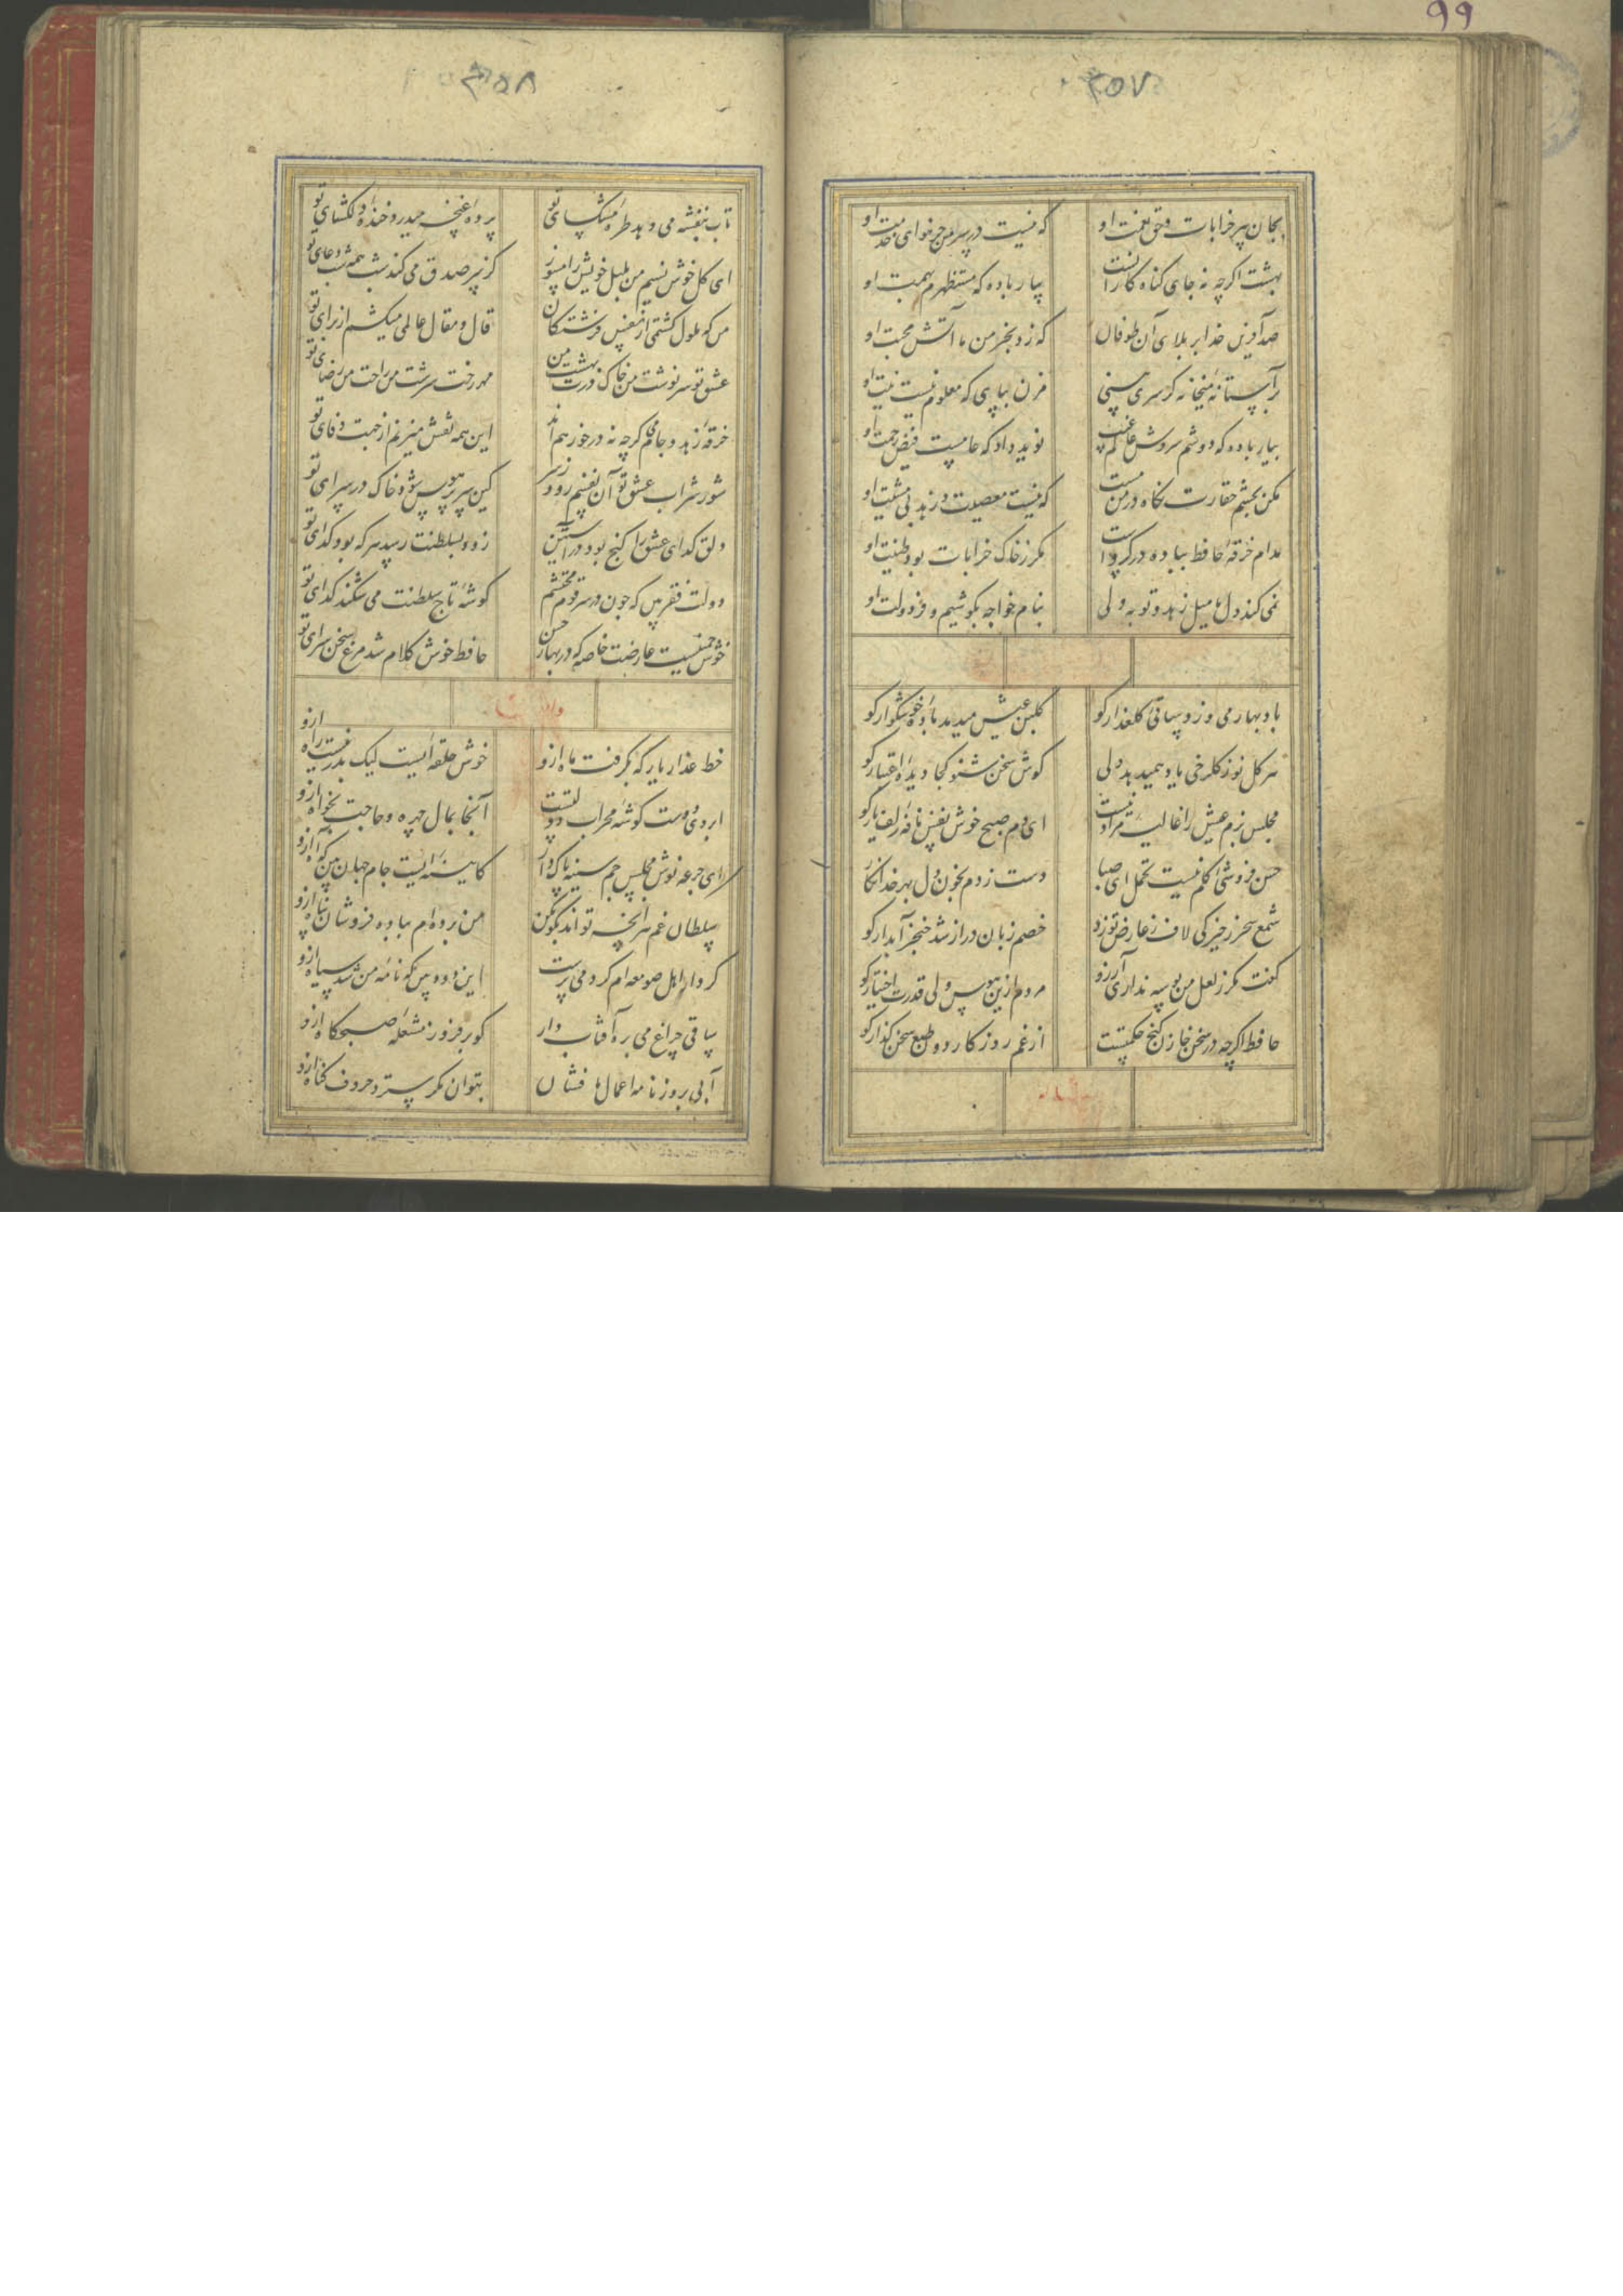 ۹۹
۳۵۷
بجان پیر خرابات و حق نعمت او که نیست در سر من جز هوای خدمت او
بهشت اگرچه نه جای گناه کارانست بیار باده که مستظهرم بهمت او
صد آفرین خدا بر بلای آن طوفان که زد بخرمن ما آتش محبت او
بر آستانه میخانه گر سری بینی مزن بپای که معلوم نیست نیت او
بیار باده که دوشم سروش عالم غیب نوید داد که عامست فیض رحمت او
مکن بچشم حقارت نگاه در من مست که نیست معصیت و زهد بی مشیت او
مدام خرقه حافظ بباده در گروست مگر ز خاک خرابات بود طینت او
نمی کند دل ما میل زهد و توبه ولی بنام خواجه بکوشیم و فر دولت او
باد بهار می وزد ساقی گلعذار کو گلبن عیش میدمد باده خوشگوار کو
هر گل نو ز گلرخی یاد همیدهد ولی گوش سخن شنو کجا دیده اعتبار کو
مجلس بزم عیش را غالیه مراد نیست ای دم صبح خوش نفس نافه زلف یار کو
حسن فروشی گلم نیست تحمل ای صبا دست زدم بخون دل بهر خدا نگار
شمع سحر ز خیرگی لاف ز عارض تو زد خصم زبان دراز شد خنجر آبدار کو
گفت مگر ز لعل من بوسه نداری آرزو مردم ازین هوس ولی قدرت اختیار کو
حافظ اگرچه در سخن خازن گنج حکمتست از غم روزگار دون طبع سخن گذار کو
۳۵۸
تاب بنفشه می دهد طره مشک سای تو پرده غنچه میدرد خنده دلگشای تو
ای گل خوش نسیم من بلبل خویش را مسوز کز سر صدق می کند شب همه شب دعای تو
من که ملول گشتمی از نفس فرشتگان قال و مقال عالمی میکشم از برای تو
عشق تو سرنوشت من خاک درت بهشت من مهر رخت سرشت من راحت من رضای تو
خرقه زهد و جام می گرچه نه در خور هم اند این همه نقش میزنم از جهت وفای تو
شور شراب عشق تو آن نفسم رود ز سر کین سر پر هوس شود خاک در سرای تو
دلق گدای عشق را گنج بود در آستین زود بسلطنت رسد هر که بود گدای تو
دولت فقر بین که چون در سر قدم محتشم گوشه تاج سلطنت می شکند گدای تو
خوش چمنیست عارضت خاصه که در بهار حسن حافظ خوش کلام شد مرغ سخن سرای تو
خط عذار یار که بگرفت ماه ازو خوش حلقه ایست لیک بدر نیست راه ازو
ابروی دوست گوشه محراب دولتست آنجا بمال چهره و حاجت بخواه ازو
ای جرعه نوش مجلس جم سینه پاک دار کایینه ایست جام جهان بین که آه ازو
سلطان غم هر آنچه تواند بگو بکن من برده ام بباده فروشان پناه ازو
کردار اهل صومعه ام کرد می پرست این دود بین که نامه من شد سیاه ازو
ساقی چراغ می بره آفتاب دار گو بر فروز مشعله صبحگاه ازو
آبی بروزنامه اعمال ما فشان بتوان مگر سترد حروف گناه ازو